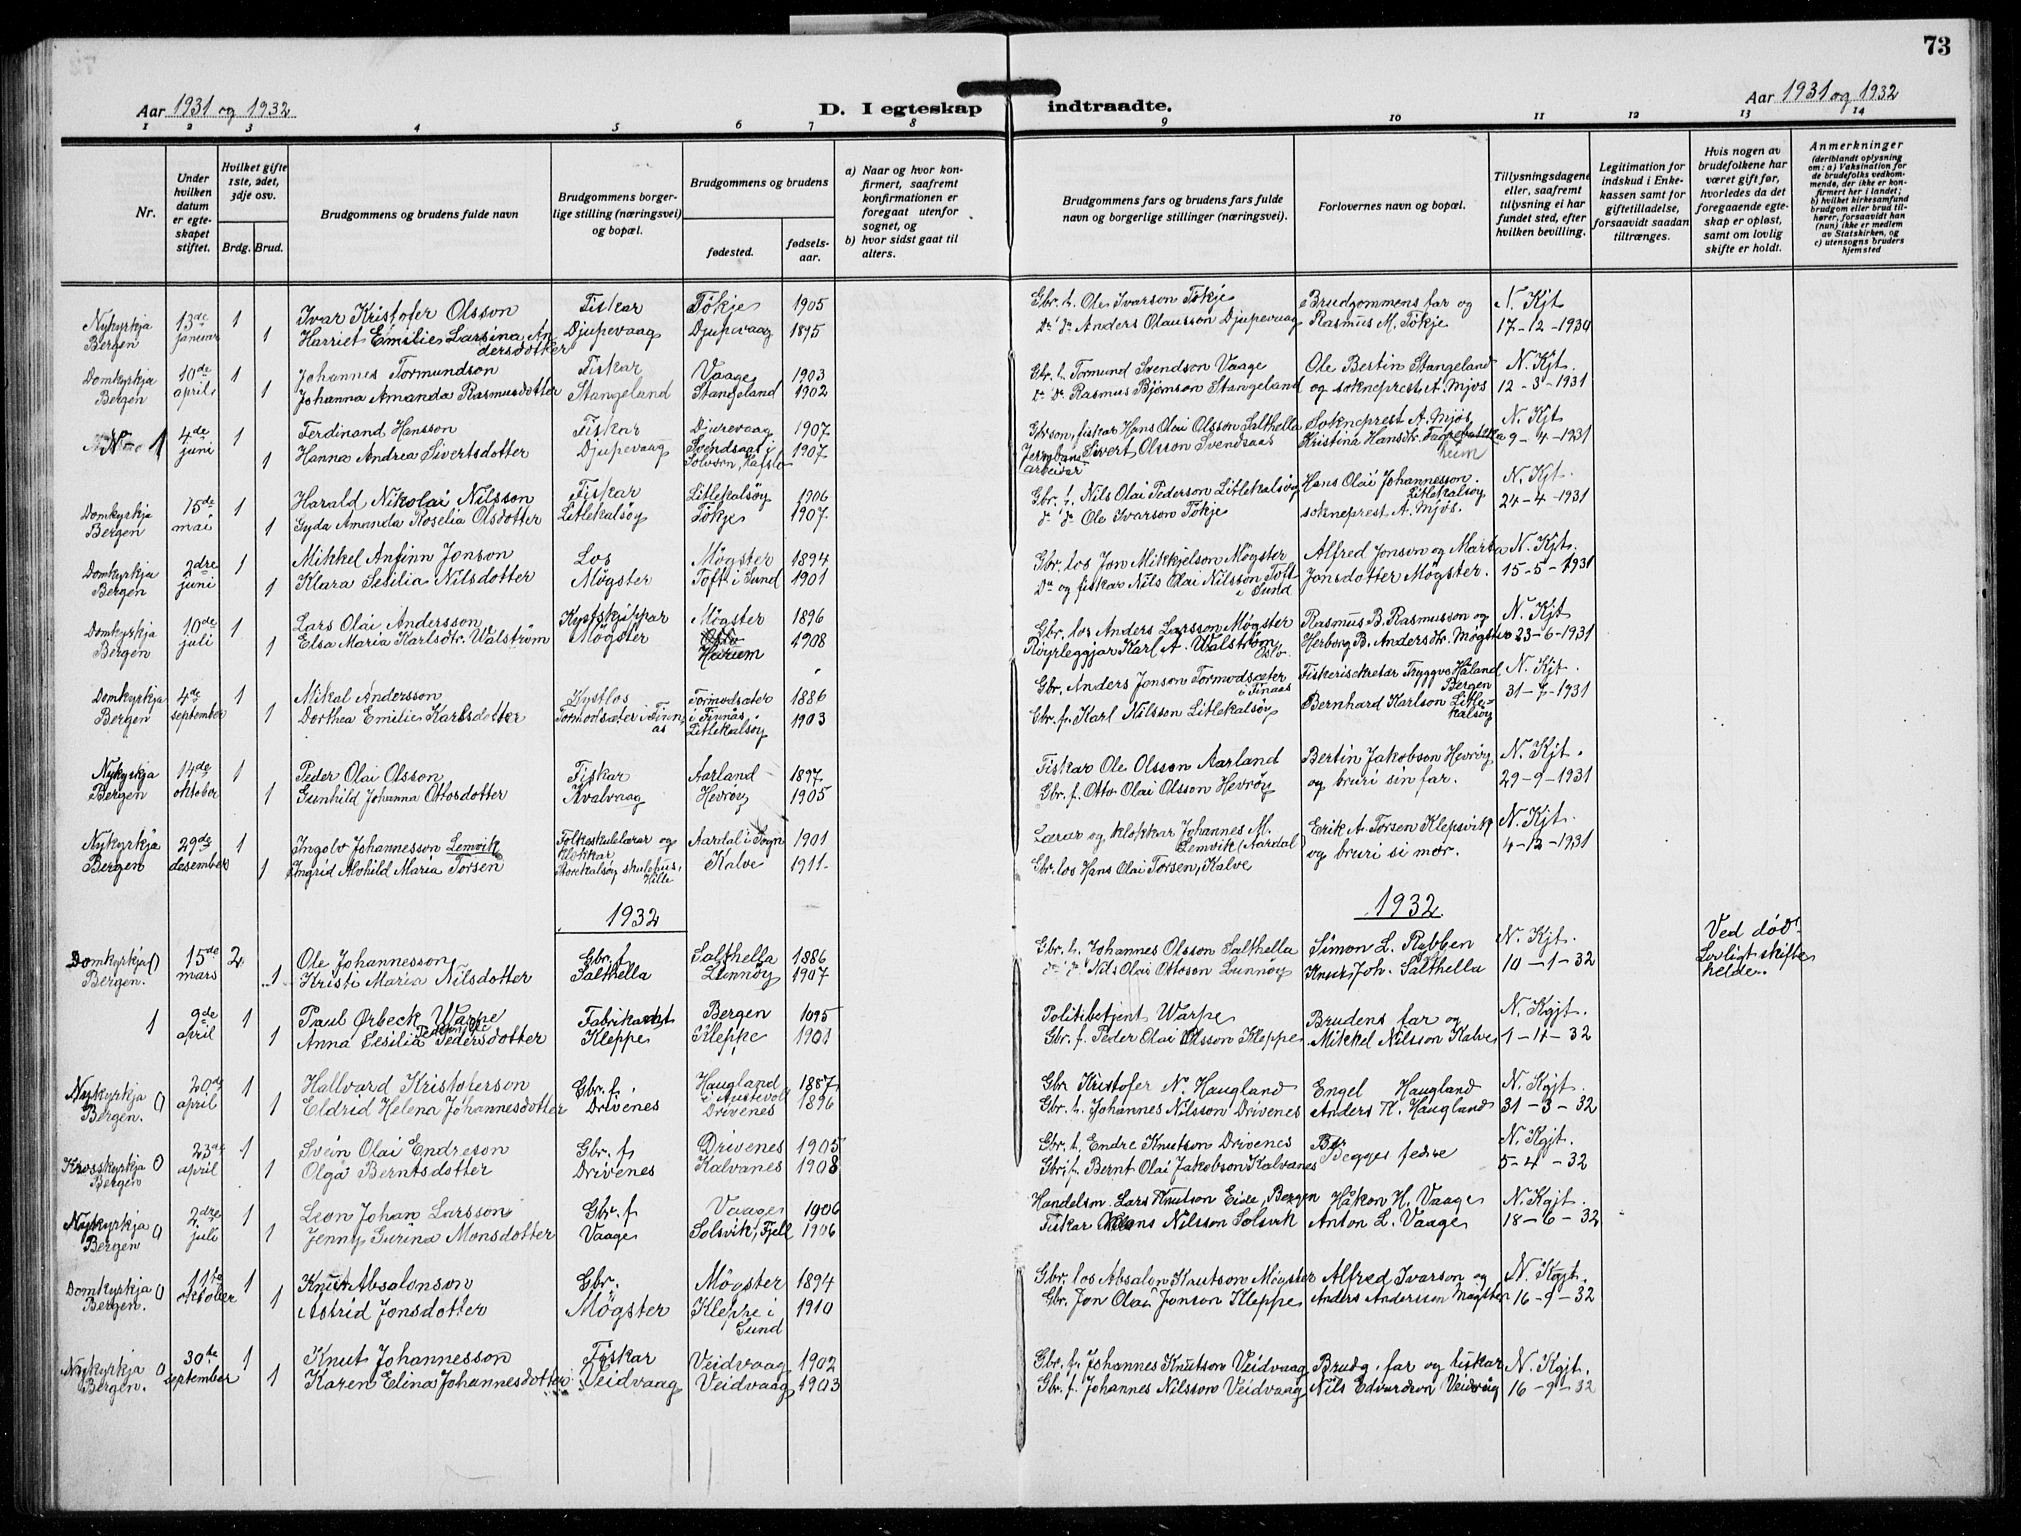 73
Aar 1931 og 1932
D. I egteskap indtraadte.
Aar 1931 og 1932
1 2 3 4 5 6 7 8 9 10 11 12 13 14
Nr.
Under hvilken datum er egteskapet stiftet.
Hvilket gifte 1ste, 2det, 3dje osv.
Brdg. Brud.
Brudgommens og brudens fulde navn
Brudgommens borgerlige stilling (næringsvei) og bopæl.
Brudgommens og brudens
fødested.
fødselsaar.
a) Naar og hvor konfirmert, saafremt konfirmationen er foregaat utenfor sognet, og
b) hvor sidst gaat til alters.
Brudgommens fars og brudens fars fulde navn og borgerlige stillinger (næringsvei).
Forlovernes navn og bopæl.
Tillysningsdagene eller, saafremt tillysning ei har fundet sted, efter hvilken bevilling.
Legitimation for indskud i Enkekassen samt for giftetilladelse, forsaavidt saadan tiltrænges.
Hvis nogen av brudefolkene har været gift før, hvorledes da det foregaaende egteskap er opløst, samt om lovlig skifte er holdt.
Anmerkninger
(deriblandt oplysning om: a) Vaksination for de brudefolks vedkommende, der ikke er konfirmert her i landet; b) hvilket kirkesamfund brudgom eller brud tilhører, forsaavidt han (hun) ikke er medlem av Statskirken, og c) utensogns bruders hjemsted
Nykyrkja 13de 1 Ivar Kristofer Olsson Fiskar Tökje 1905 Gbr. h. Ole Ivarson Tökje Brudgommens far og N. Kjt
Bergen januar 1 Harriet Emilie Larsina Andersdotter Djupevaag Djupevaag 1895 Do do Anders Olausson Djupevaag Rasmus M. Tökje 17-12-1930
Domkyrkja 10de 1 Johannes Tormundson Fiskar Vaage 1903 Gbr. h. Tormund Svendson Vaage Ole Bertin Stangeland N. Kjt.
Bergen april 1 Johanna Amanda Rasmusdotter Stangeland Stangeland 1902 Do Do Rasmus Bjørnson Stangeland og sokneprest A. Mjøs 12-3-1931
N 1 4de 1 Ferdinand Hansson Fiskar Djupevaag 1907 Gbrson, fiskar Hans Olai Olsson Salthella Sokneprest A. Mjøs N. Kjt
juni 1 Hanna Andrea Sivertsdotter Djupevaag Svendsaas i 1907 Jernbanearbeidar Sivert Olsson Svendsaas Kristina Hansdtr. 9-4-1931
Domkyrkja 15de 1 Harald Nikolai Nilsson Fiskar Litlekalsöy 1906 Gbr. h. Nils Olai Pederson Litlekalsöy Hans Olai Johannesson Litlekalsöy N. Kjt.
Bergen mai 1 Gyda Amanda Roselia Olsdotter Litlekalsöy Tökje 1907 do do Ole Ivarson Tökje sokneprest A. Mjøs. 24-4-1931
Domkyrkja 2dre 1 Mikkel Anfinn Jonson Los Møgster 1894 Gbr. los Jon Mikkjelson Møgster Alfred Jonson og Marta N. Kjt.
Bergen juni 1 Klara Sesilia Nilsdotter Møgster Toft i Sund 1901 Do og fiskar Nils Olai Nilsson Toft i Sund Jonsdotter Møgster. 15-5-1931
Domkyrkja 10de 1 Lars Olai Andersson Kystskippar Møgster 1896 Gbr. los Anders Larsson Møgster Rasmus B. Rasmusson og N. Kjt
Bergen juli 1 Elsa Maria Karlsdtr. Walström Møgster 1908 Röyrleggjar Karl A. Walström Oslo Herborg B. Andersdtr. Møgster 23-6-1931
Domkyrkja 4de 1 Mikal Andersson Kystlos Tormodsæter i Finnås 1886 Gbr. Anders Jonson Tormodsæter i Finaas Fiskerisekretær Tryggve Håland Bergen N. Kjt.
Bergen september 1 Dorthea Emilie Karlsdotter Tormodsæter i Finnås Litlekalsöy 1903 Gbr. f. Karl Nilsson Litlekalsöy Bernhard Karlson Litlekalsöy 31-7-1931
Nykyrkja 14de 1 Peder Olai Olsson Fiskar Aarland 1897 Fiskar Ole Olsson Aarland Bertin Jakobson Hevröy N. Kjt.
Bergen oktober 1 Gunhild Johanna Ottosdotter Kvalvaag Hevröy 1905 Gbr. f. Otto Olai Olsson Hevröy og bruri sin far. 29-9-1931
Nykyrkja 29de 1 Ingolv Johannesson Lemvik Folkeskulelærar og klokkar Aardal i Sogn 1901 Lærar og klokkar Johannes M. Lemvik (Aardal) Erik A. Torsen Klepsvik N. Kjt.
Bergen desember 1 Ingrid Alvhild Maria Torsen Storekalsöy skulehus, Kalve 1911 Gbr. los Hans Olai Torsen, Kalve og bruri si mor. 4-12-1931
1932 1932
Domkyrkja 15de 2 Ole Johannesson Gbr. f Salthella 1886 Gbr. h. Johannes Olsson Salthella Simon L. Rabben N. Kjt. Ved död.
Bergen. mars 1 Kristi Maria Nilsdotter Salthella Lunnöy 1907 do do Nils Olai Ottoson Lunnöy Knut Joh. Salthella 10-1-32 Lovligt skifte helde.
1 9de 1 Paul Ørbeck Warpe Fabrikant Bergen 1895 Politibetjent Warpe Brudens far og N. Kgjt.
april 1 Anna Sesilia Pedersdotter Kleppe Kleppe 1901 Gbr. f. Peder Olai Olsson Kleppe Mikkel Nilsson Kalve 1-4-32
Nykyrkja 20de 1 Hallvard Kristoferson Gbr. f. Haugland i Austevoll 1887 Gbr Kristofer N. Haugland Engel Haugland N. Kgjt.
Bergen. april 1 Eldrid Helena Johannesdotter Drivenes Drivenes 1896 Gbr. h. Johannes Nilsson Drivenes Anders Haugland 31-3-32
Krosskyrkja 23de 1 Svein Olai Endreson Gbr. f Drivenes 1905 Gbr. h. Endre Knutson Drivenes Begges fedre N. Kgjt.
Bergen april 1 Olga Berntsdotter Drivenes Kalvanes 1908 Gbr. f. Bernt Olai Jakobson Kalvanes 5-4-32
Nykyrkja 2dre 1 Leon Johan Larsson Gbr. f Vaage 1906 Handelsm. Lars Knutson Eide, Bergen Håkon H. Vaage N. Kgjt.
Bergen juli 1 Jenny Surina Monsdotter Vaage Solsvik, Fjell 1906 Fiskar Mons Nilsson Solsvik Anton L. Vaage 18-6-32
Domkyrkja 11te 1 Knut Absalonson Gbr. Møgster 1894 Gbr. los Absalon Knutson Møgster Alfred Ivarson og N. Kgjt.
Bergen. oktober 1 Astrid Jonsdotter Møgster Kleppe i Sund 1910 Gbr. Jon Olai Jonson Kleppe Anders Anderssen Møgster 16-9-32
Nykyrkja 30te 1 Knut Johannesson Fiskar Veidvaag 1902 Gbr. f. Johannes Knutson Veidvaag Brudg. far og fiskar N. Kgjt.
Bergen. september 1 Karen Elina Johannesdotter Veidvaag Veidvaag 1903 Gbr. f. Johannes Nilsson Veidvaag Nils Edvardson Veidvåg 16-9-32